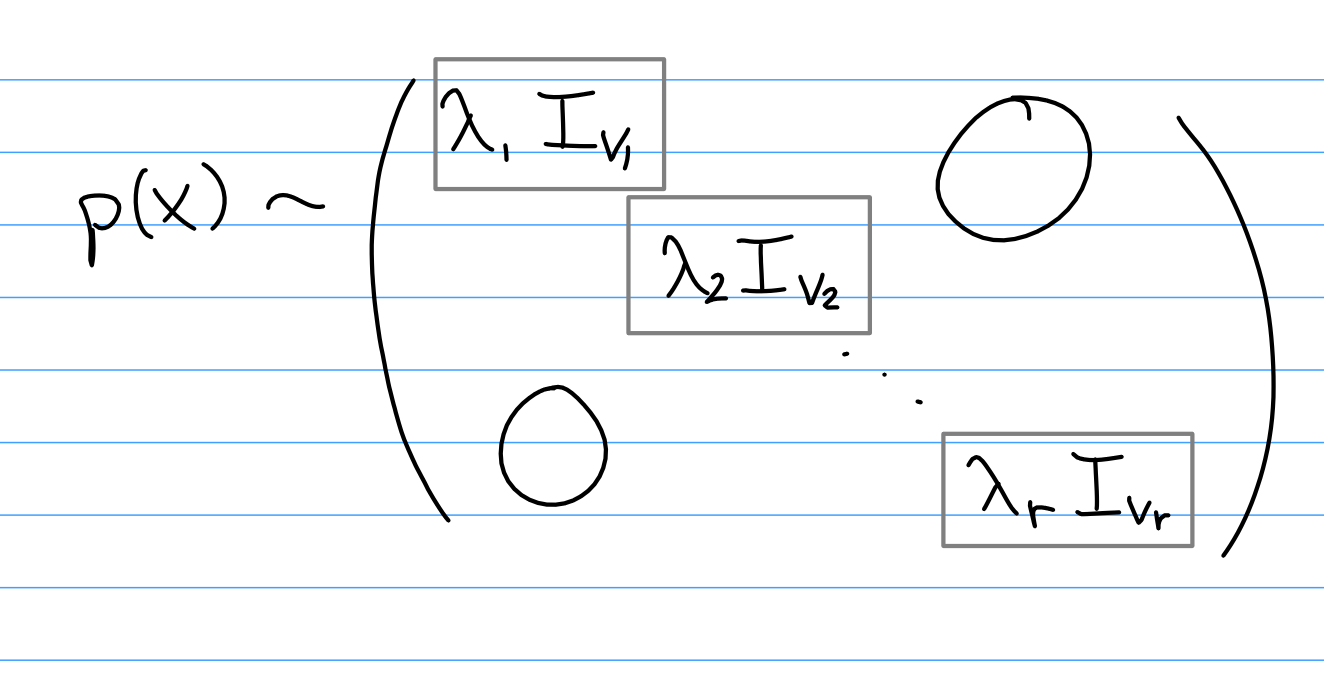 p(X) ~ ( λ₁ I_V₁ O
λ₂ I_V₂
⋱
O λᵣ I_Vᵣ )